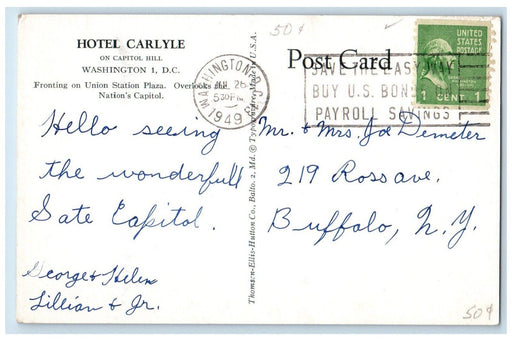 50¢
HOTEL CARLYLE
ON CAPITOL HILL
WASHINGTON 1, D.C.
Fronting on Union Station Plaza. Overlooks the
Nation's Capitol.
Hello seeing
the wonderfull
Sate Capitol.
George & Helen
Lillian & Jr.
Thomsen-Ellis-Hutton Co., Balto. 2, Md. Made in U.S.A.
Post Card
WASHINGTON, D.C.
530 PM
1949
SAVE THE EASY WAY
BUY U.S. BONDS ON
PAYROLL SAVINGS
UNITED
STATES
POSTAGE
1 CENT 1
Mr. & Mrs Joe Demeter
219 Ross ave.
Buffalo, N.Y.
50¢